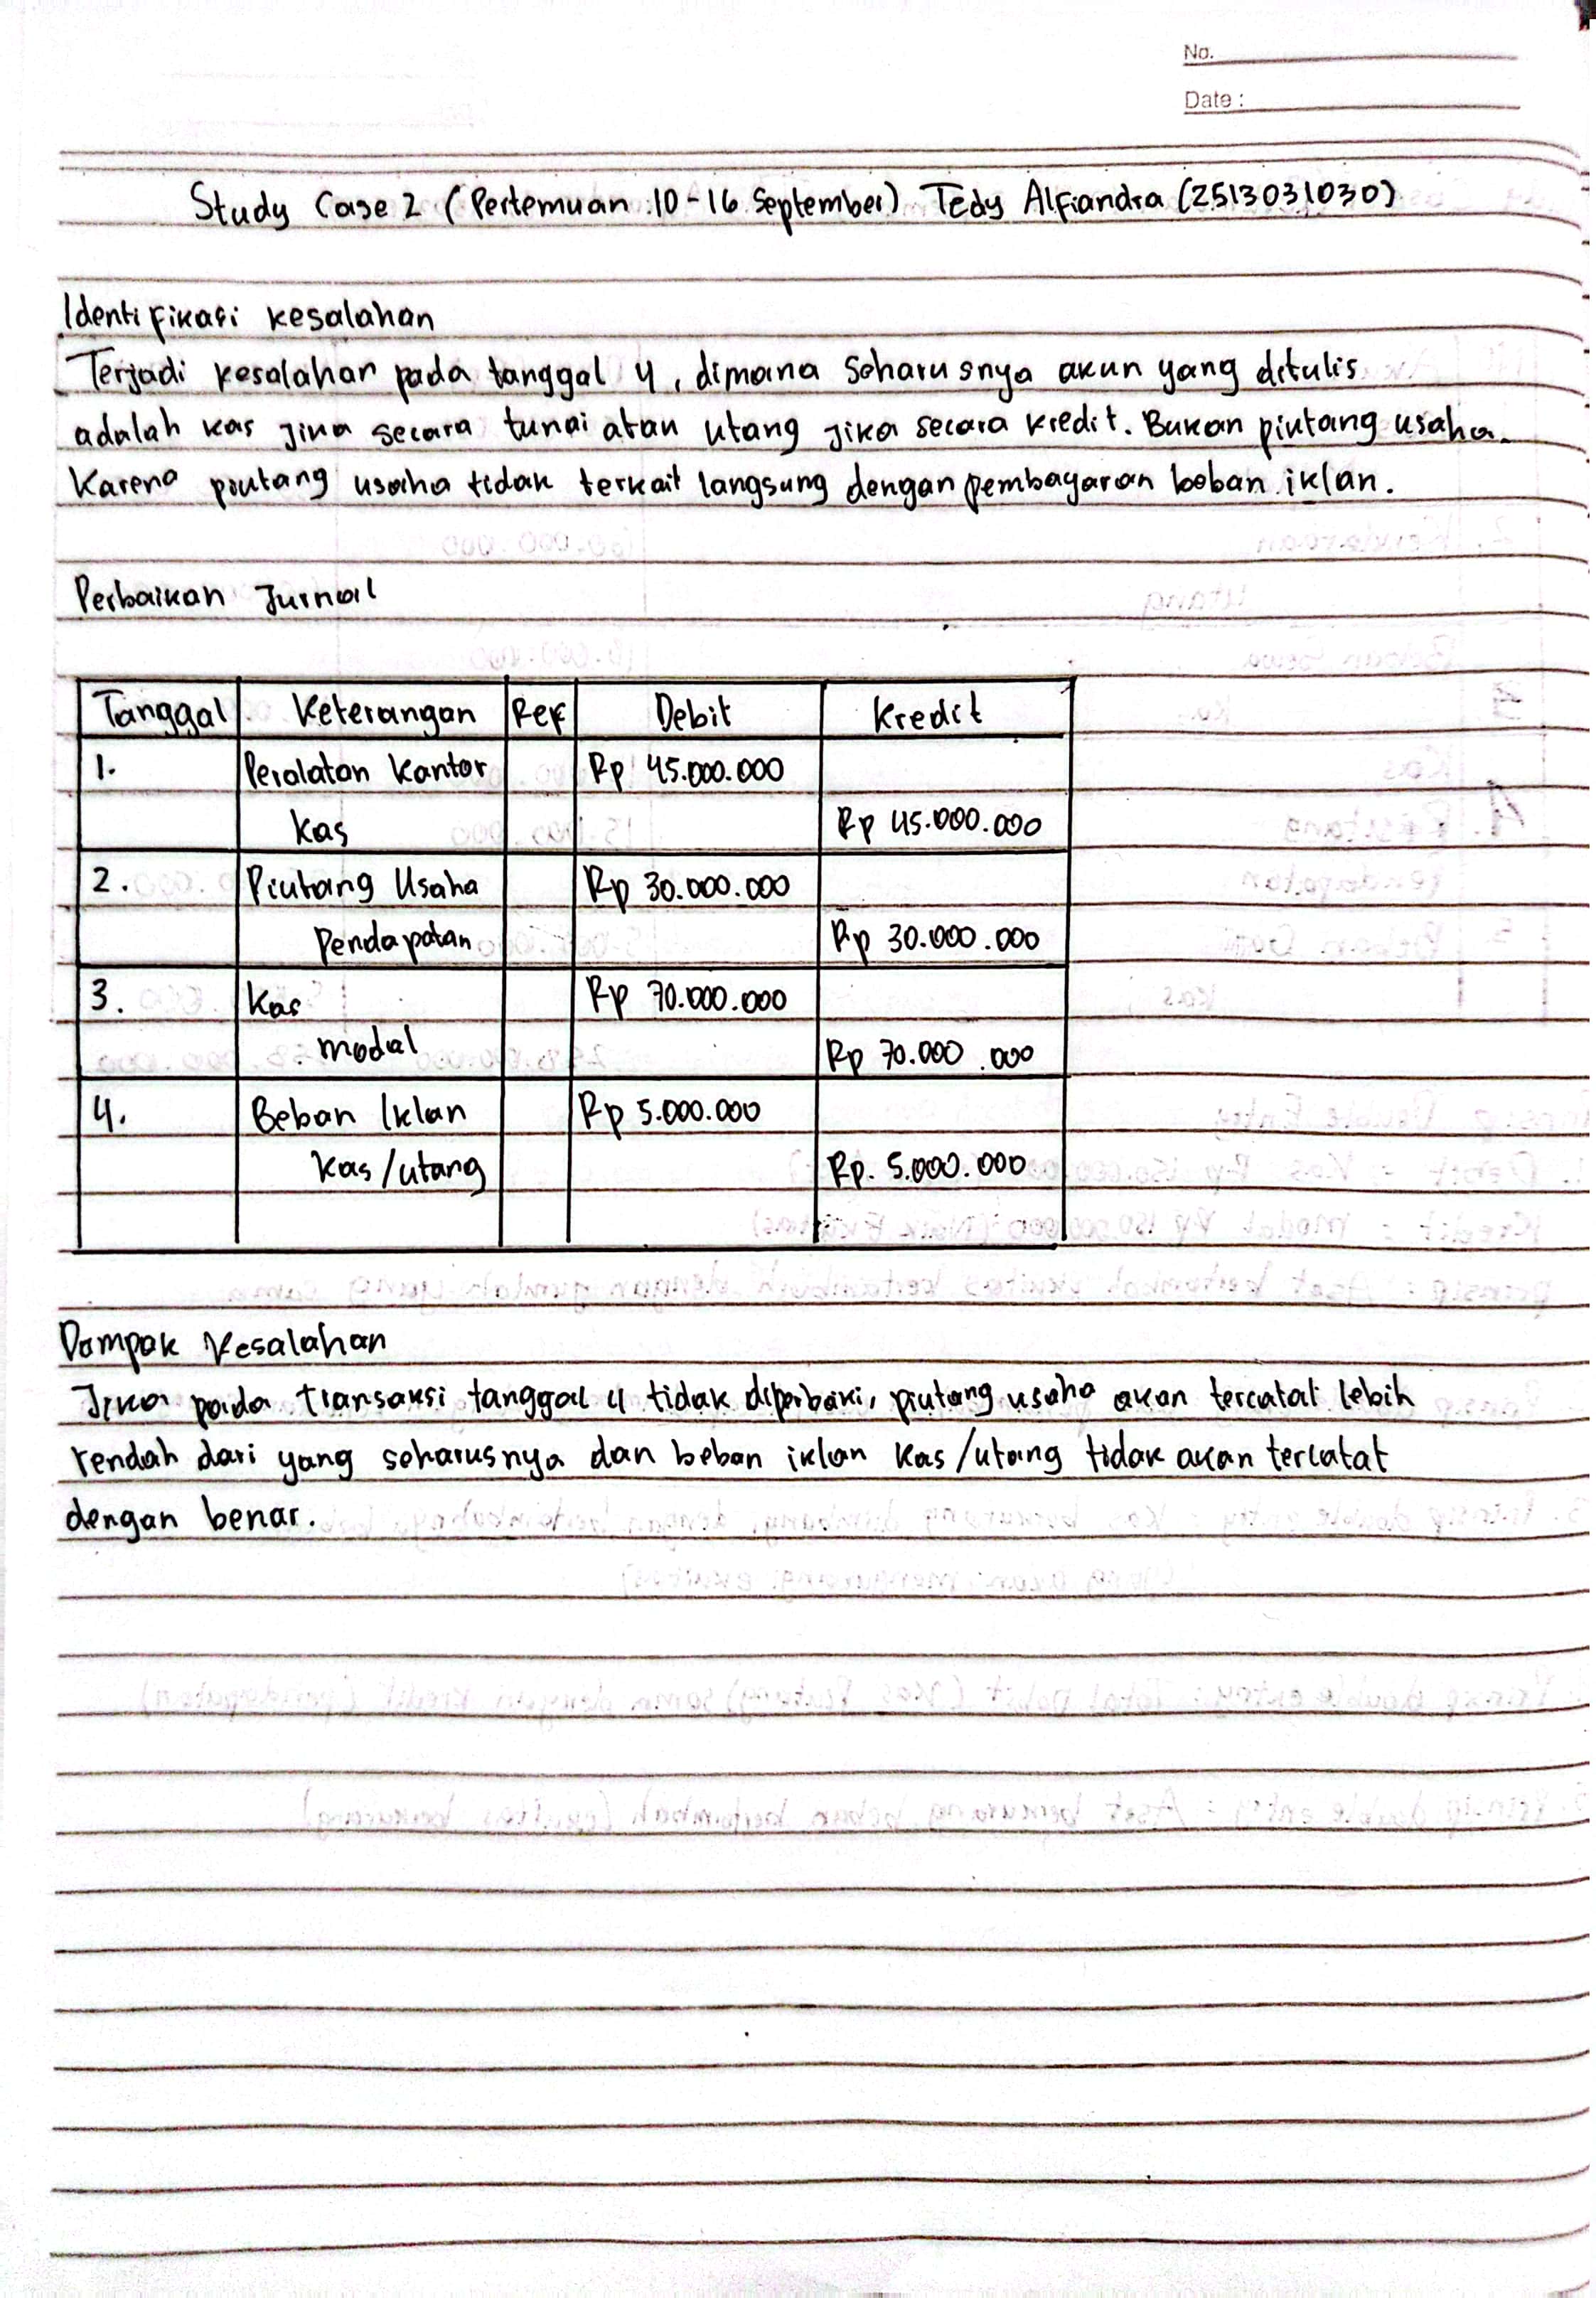 No.
Date :
Study Case 2 (Pertemuan 10-16 September) Tedy Alfiandra (2513031030)
Identifikasi kesalahan
Terjadi kesalahan pada tanggal 4, dimana Seharusnya akun yang ditulis
adalah kas jika secara tunai atau utang jika secara kredit. Bukan piutang usaha.
Karena piutang usaha tidak terkait langsung dengan pembayaran beban iklan.
Perbaikan Jurnal
Tanggal Keterangan Ref Debit Kredit
1. Peralatan Kantor Rp 45.000.000
Kas Rp 45.000.000
2. Piutang Usaha Rp 30.000.000
Pendapatan Rp 30.000.000
3. Kas Rp 70.000.000
modal Rp 70.000.000
4. Beban Iklan Rp 5.000.000
Kas/utang Rp. 5.000.000
Dampak Kesalahan
Jika pada transaksi tanggal 4 tidak diperbaiki, piutang usaha akan tercatat lebih
rendah dari yang seharusnya dan beban iklan kas/utang tidak akan tercatat
dengan benar.